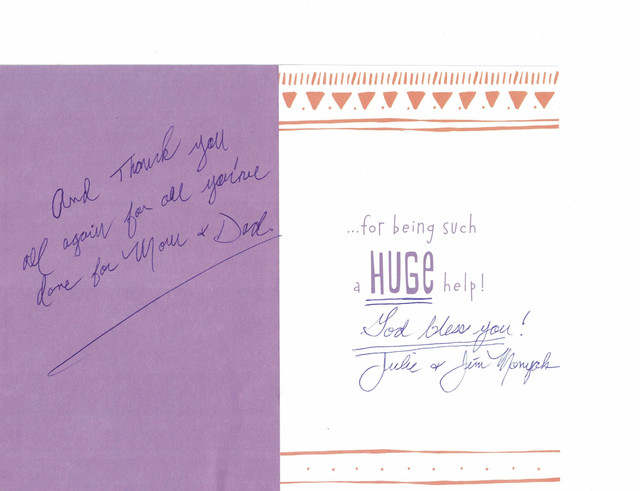 And Thank you
all again for all you've
done for Mom & Dad.
...for being such
a HUGE help!
God bless you!
Julie & Jim